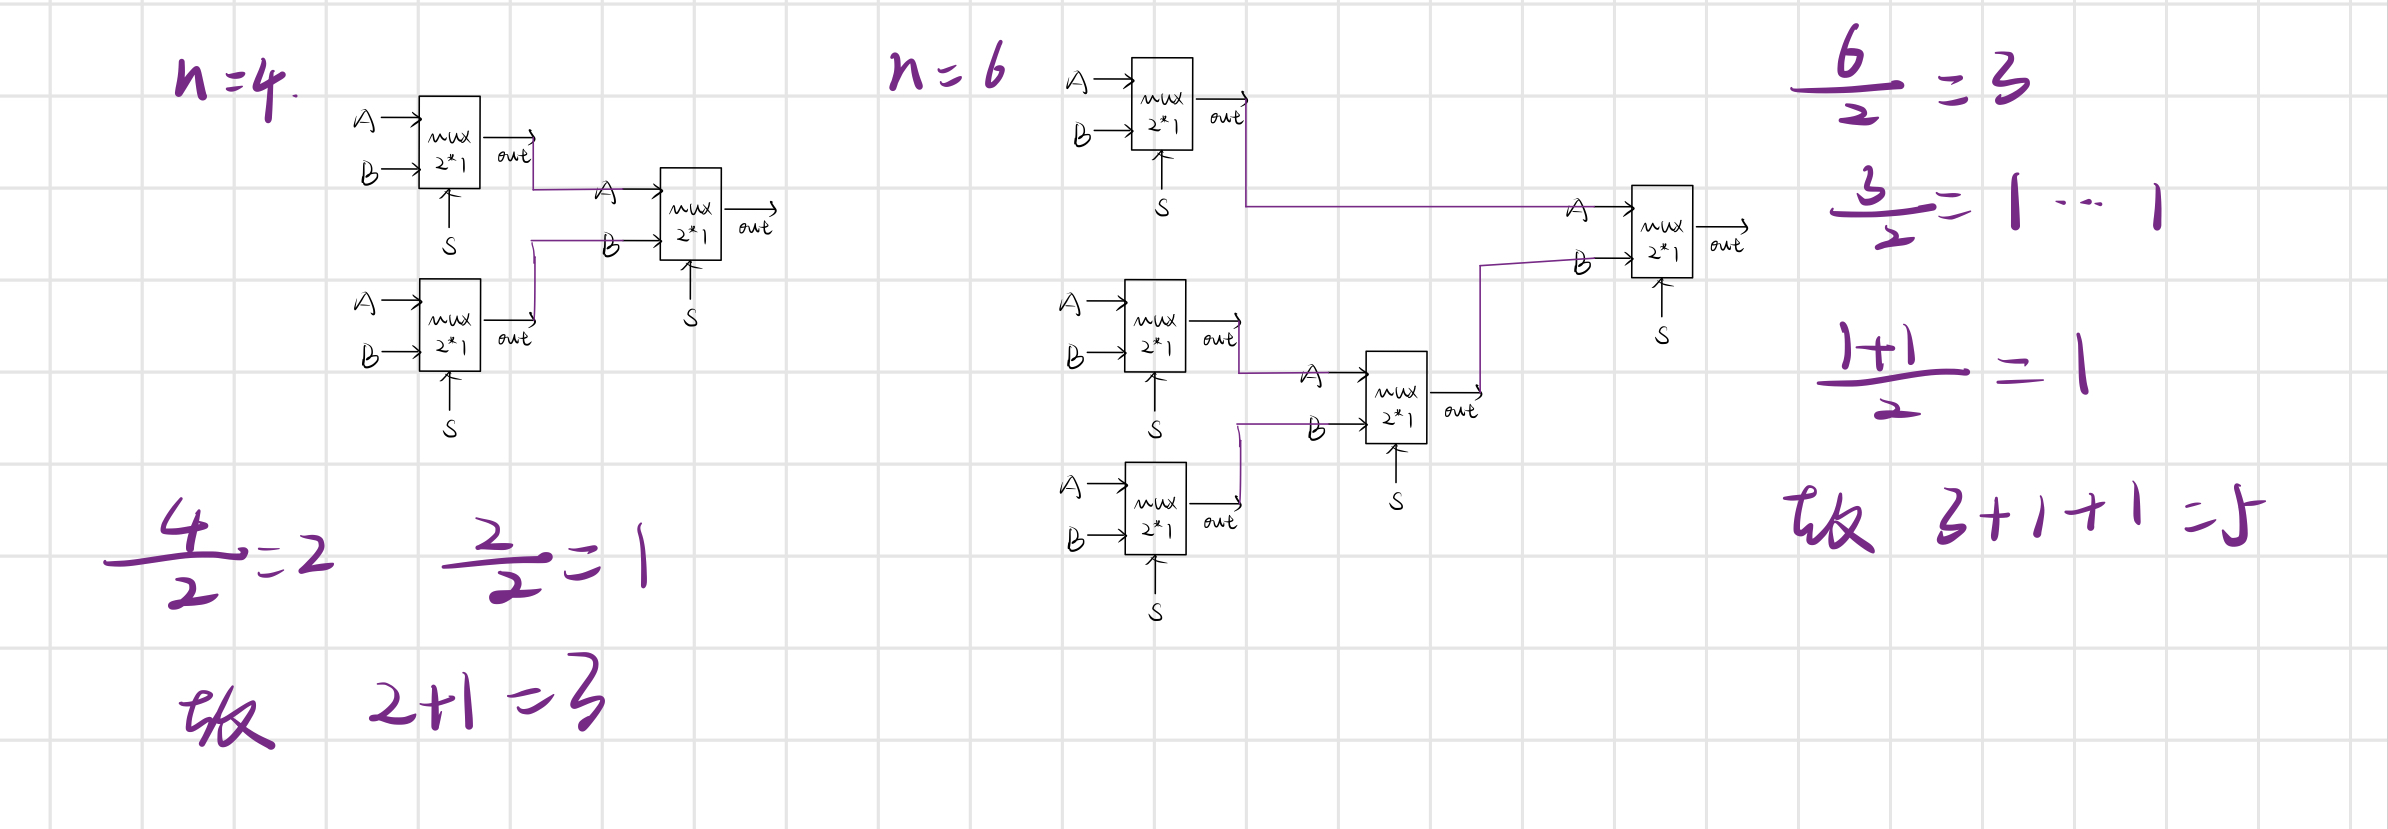 n=4.
A
B
mux
2*1
out
S
A
B
mux
2*1
out
S
A
B
mux
2*1
out
S
4/2=2
2/2=1
故 2+1=3
n=6
A
B
mux
2*1
out
S
A
B
mux
2*1
out
S
A
B
mux
2*1
out
S
A
B
mux
2*1
out
S
A
B
mux
2*1
out
S
6/2=3
3/2=1…1
1+1/2=1
故 3+1+1=5